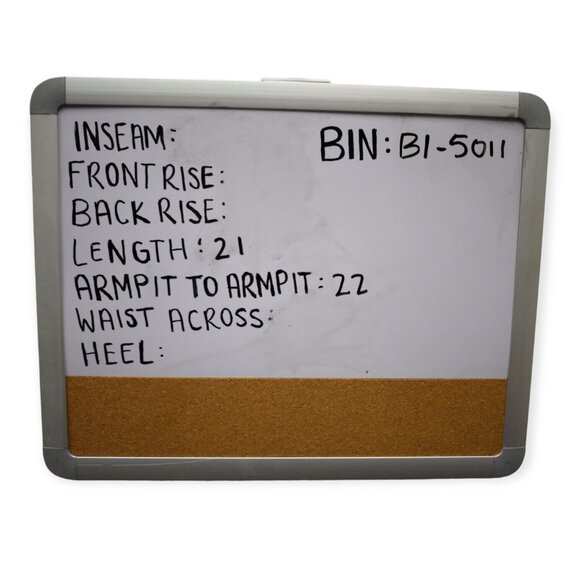 INSEAM:
BIN: B1-5011
FRONT RISE:
BACK RISE:
LENGTH: 21
ARMPIT TO ARMPIT: 22
WAIST ACROSS:
HEEL: